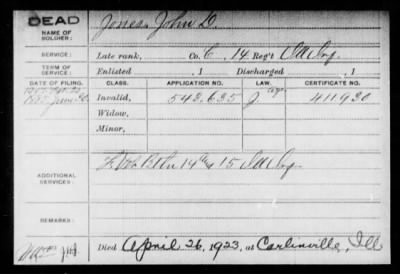 DEAD
NAME OF SOLDIER:
Jones, John D.
SERVICE:
Late rank, Co. C, 14 Reg't Ill Inf.
TERM OF SERVICE:
Enlisted , 1 Discharged , 1
DATE OF FILING. CLASS. APPLICATION NO. LAW. CERTIFICATE NO.
Invalid, 543.635 411930
Widow,
Minor,
ADDITIONAL SERVICES:
14 15 Ill Inf
REMARKS:
Died April 26, 1923, at Carlinville, Ill